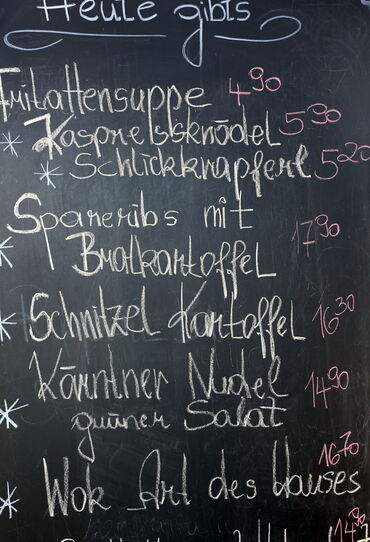 Heute gibts
Fritattensuppe 4,90
Kaspressknödel 5,90
* Schlickkrapferl 5,20
Spareribs mit 17,90
Bratkartoffel
Schnitzel Kartoffel 16,30
Kärntner Nudel 14,90
grüner Salat
16,70
Wok Art des Hauses
14,90